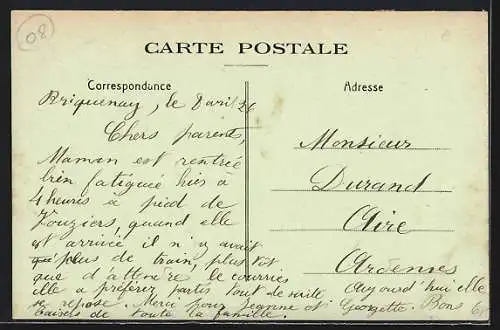 08
CARTE POSTALE
Correspondance
Adresse
Briquenay, le 8 avril 26
Chers parents,
Maman est rentrée
bien fatiguée hier à
4 heures à pied de
Vouziers, quand elle
est arrivée il n'y avait
plus de train, plus tôt
que d'attendre le courrier
elle a préférer partir tout de suite Aujourd'hui elle
se repose. Merci pour Jeanne et Georgette. Bons
baisers de toute la famille.
Monsieur
Durand
Aire
Ardennes